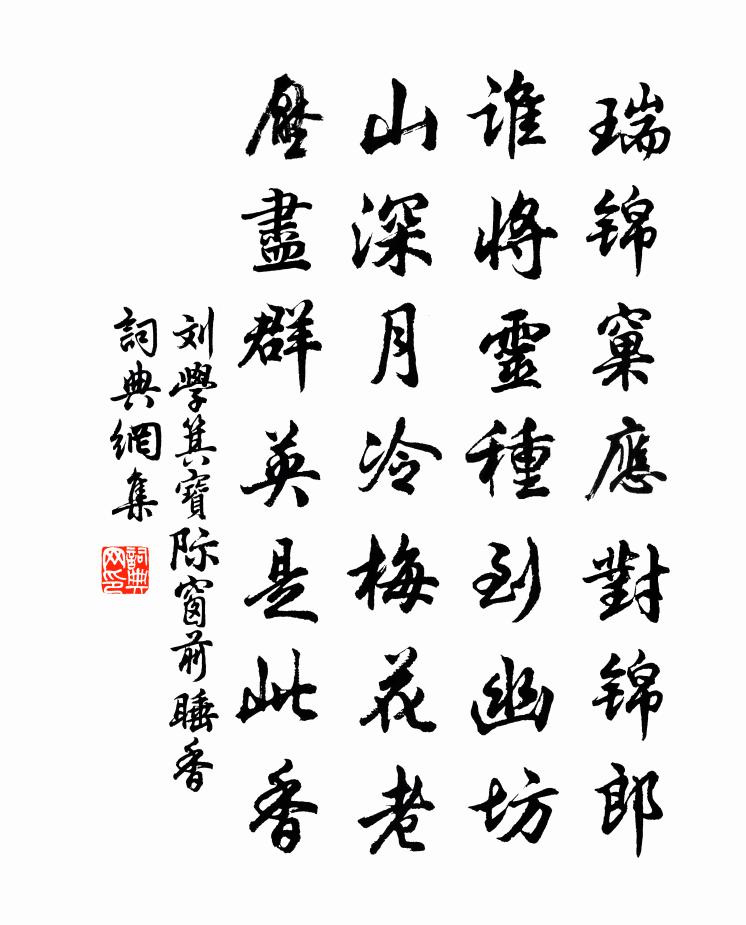 瑞锦窠應對锦郎
誰將靈種到幽坊
山深月冷梅花老
壓盡群英是此香
刘學箕寶际窗前睡香
詞典網集
詞典网印